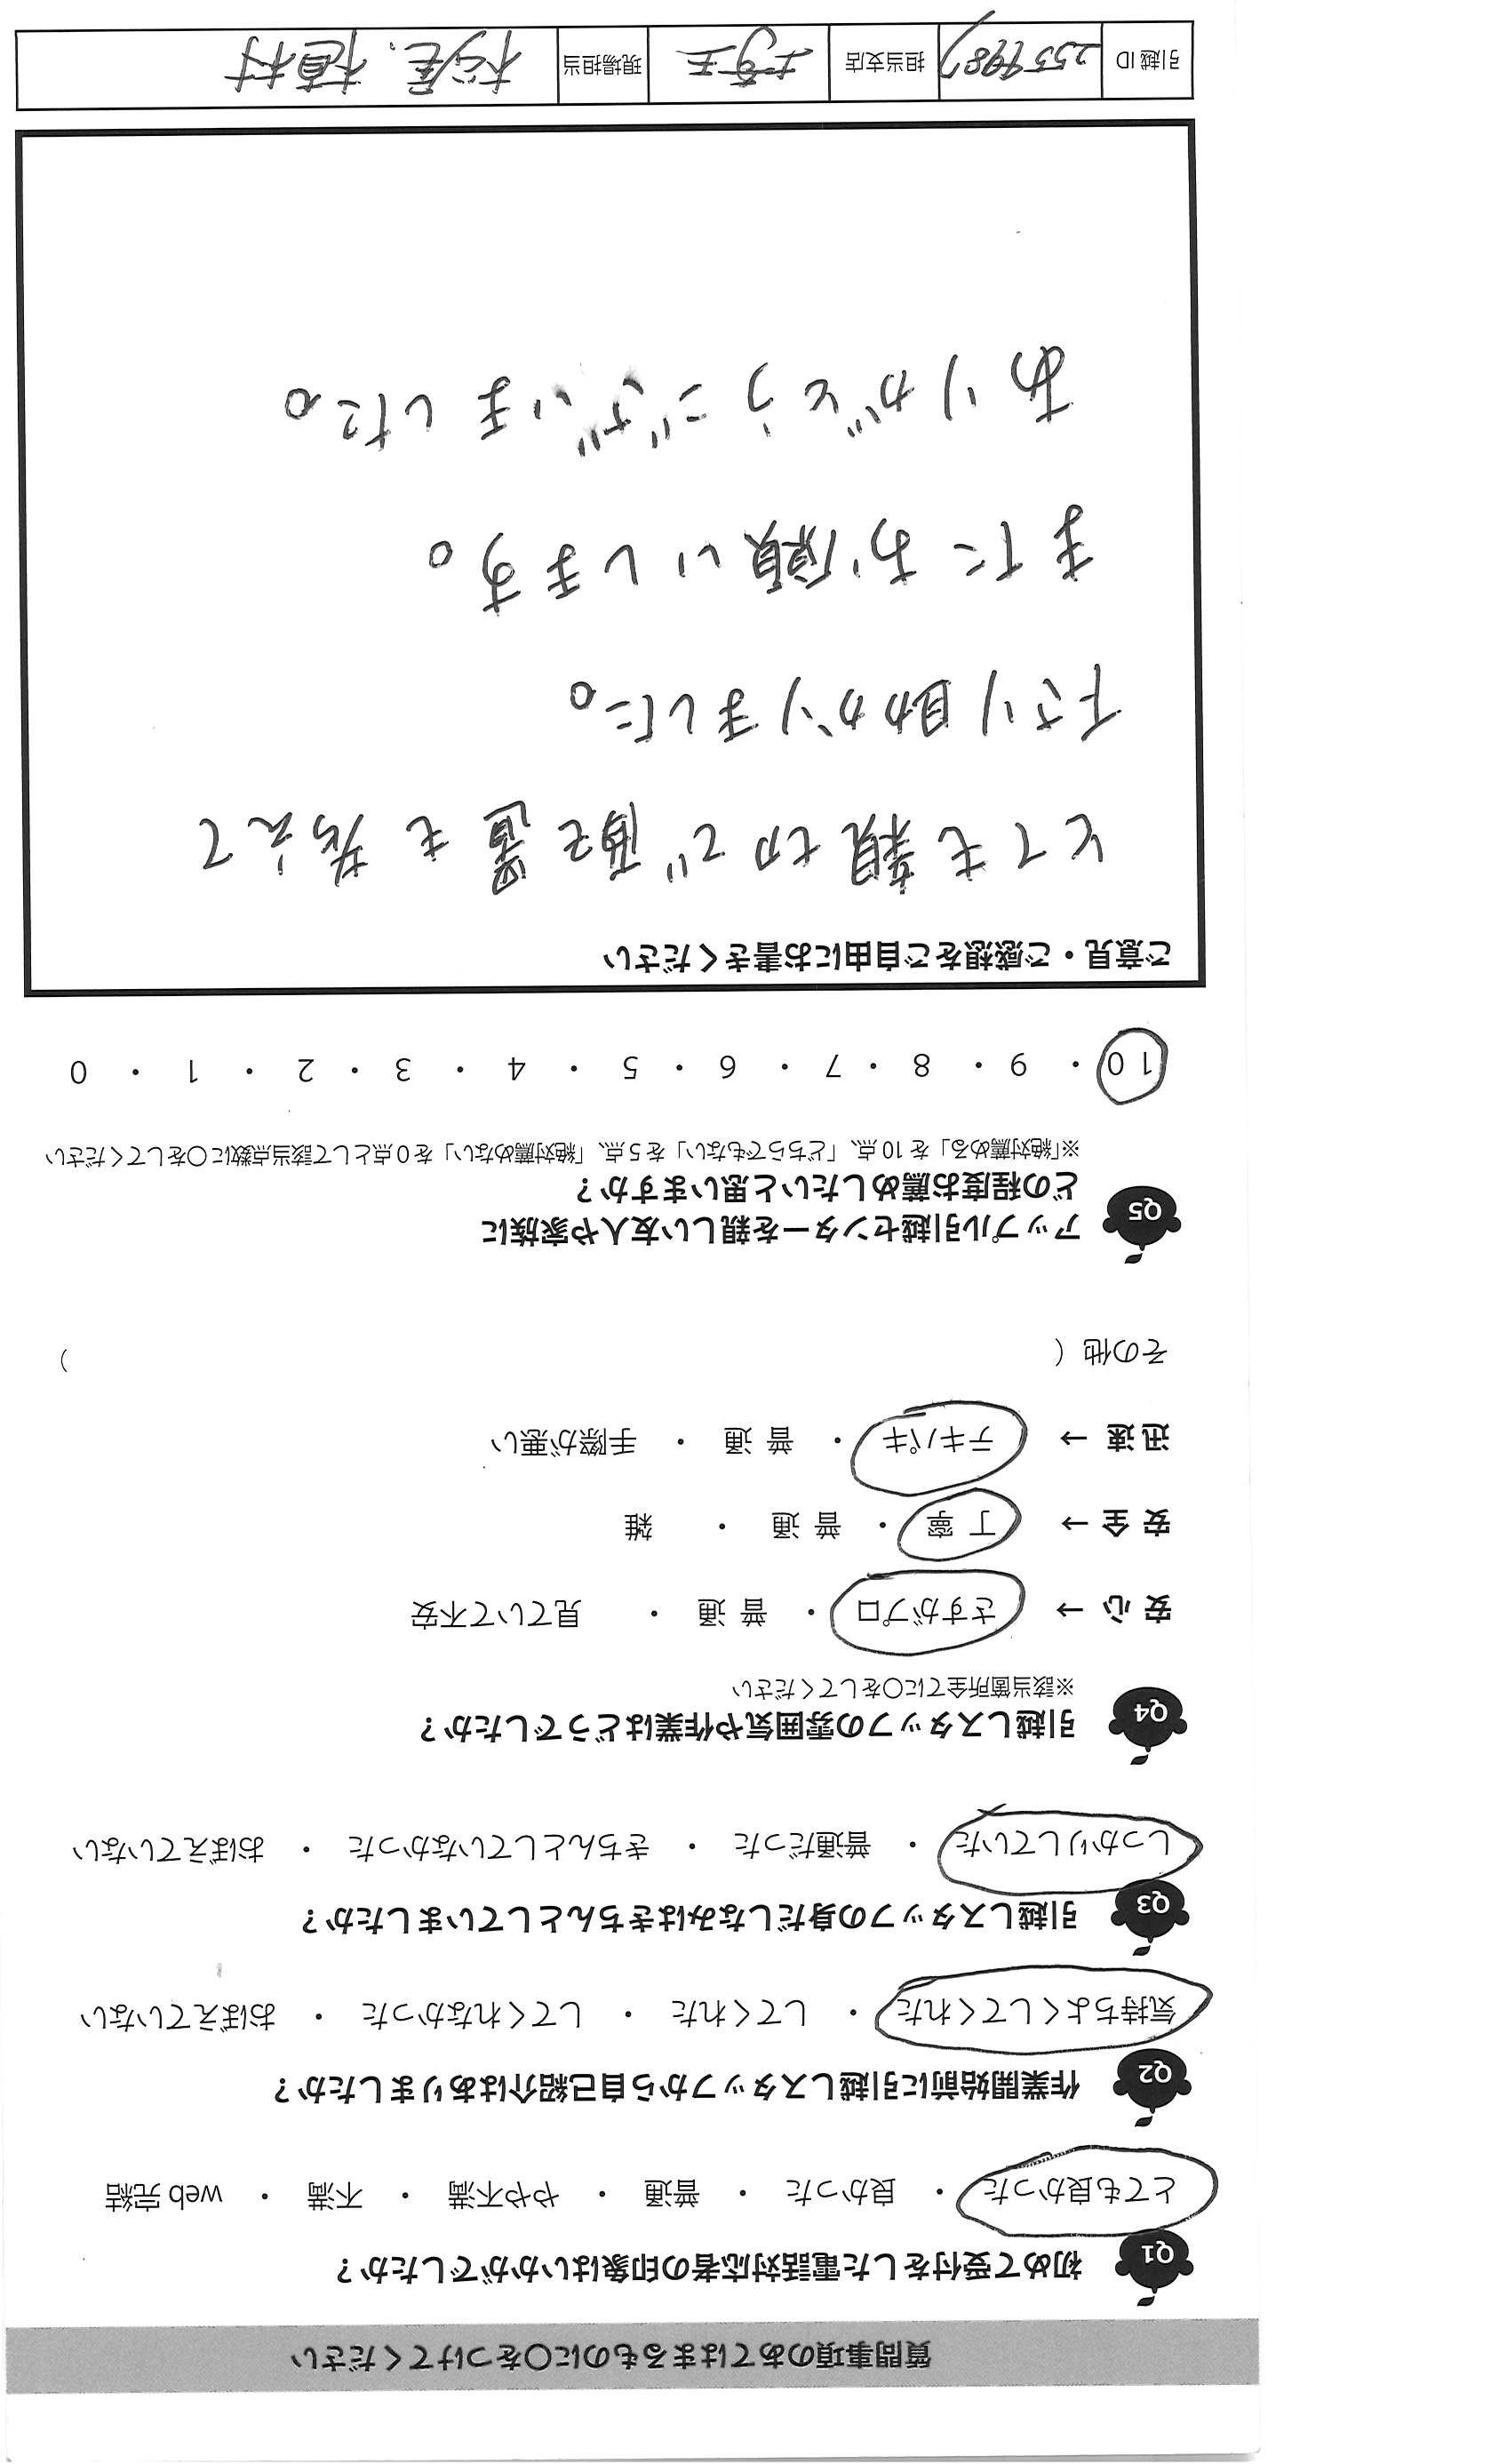 質問事項のあてはまるものに○をつけてください
Q1 初めて受付をした電話対応者の印象はいかがでしたか？
とても良かった ・ 良かった ・ 普通 ・ やや不満 ・ 不満 ・ web 完結
Q2 作業開始前に引越しスタッフから自己紹介はありましたか？
気持ちよくしてくれた ・ してくれた ・ してくれなかった ・ おぼえていない
Q3 引越しスタッフの身だしなみはきちんとしていましたか？
しっかりしていた ・ 普通だった ・ きちんとしていなかった ・ おぼえていない
Q4 引越しスタッフの雰囲気や作業はどうでしたか？
※該当箇所全てに○をしてください
安 心 → さすがプロ ・ 普 通 ・ 見ていて不安
安 全 → 丁 寧 ・ 普 通 ・ 雑
迅 速 → テキパキ ・ 普 通 ・ 手際が悪い
その他（ ）
Q5 アップル引越センターを親しい友人や家族に
どの程度お薦めしたいと思いますか？
※「絶対薦める」を 10 点、「どちらでもない」を 5 点、「絶対薦めない」を 0 点として該当点数に○をしてください
10 ・ 9 ・ 8 ・ 7 ・ 6 ・ 5 ・ 4 ・ 3 ・ 2 ・ 1 ・ 0
ご意見・ご感想をご自由にお書きください
とても親切で配置も考えて
下さり助かりました。
またお願いします。
ありがとうございました。
引越 ID 担当支店 埼玉 現場担当 松尾、植村